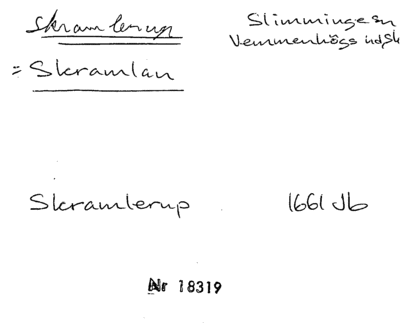 Skramlerup Slimminge sn
= Skramlan Vemmenhögs hd, Sk
Skramlerup 1661 Jb
Nr 18319